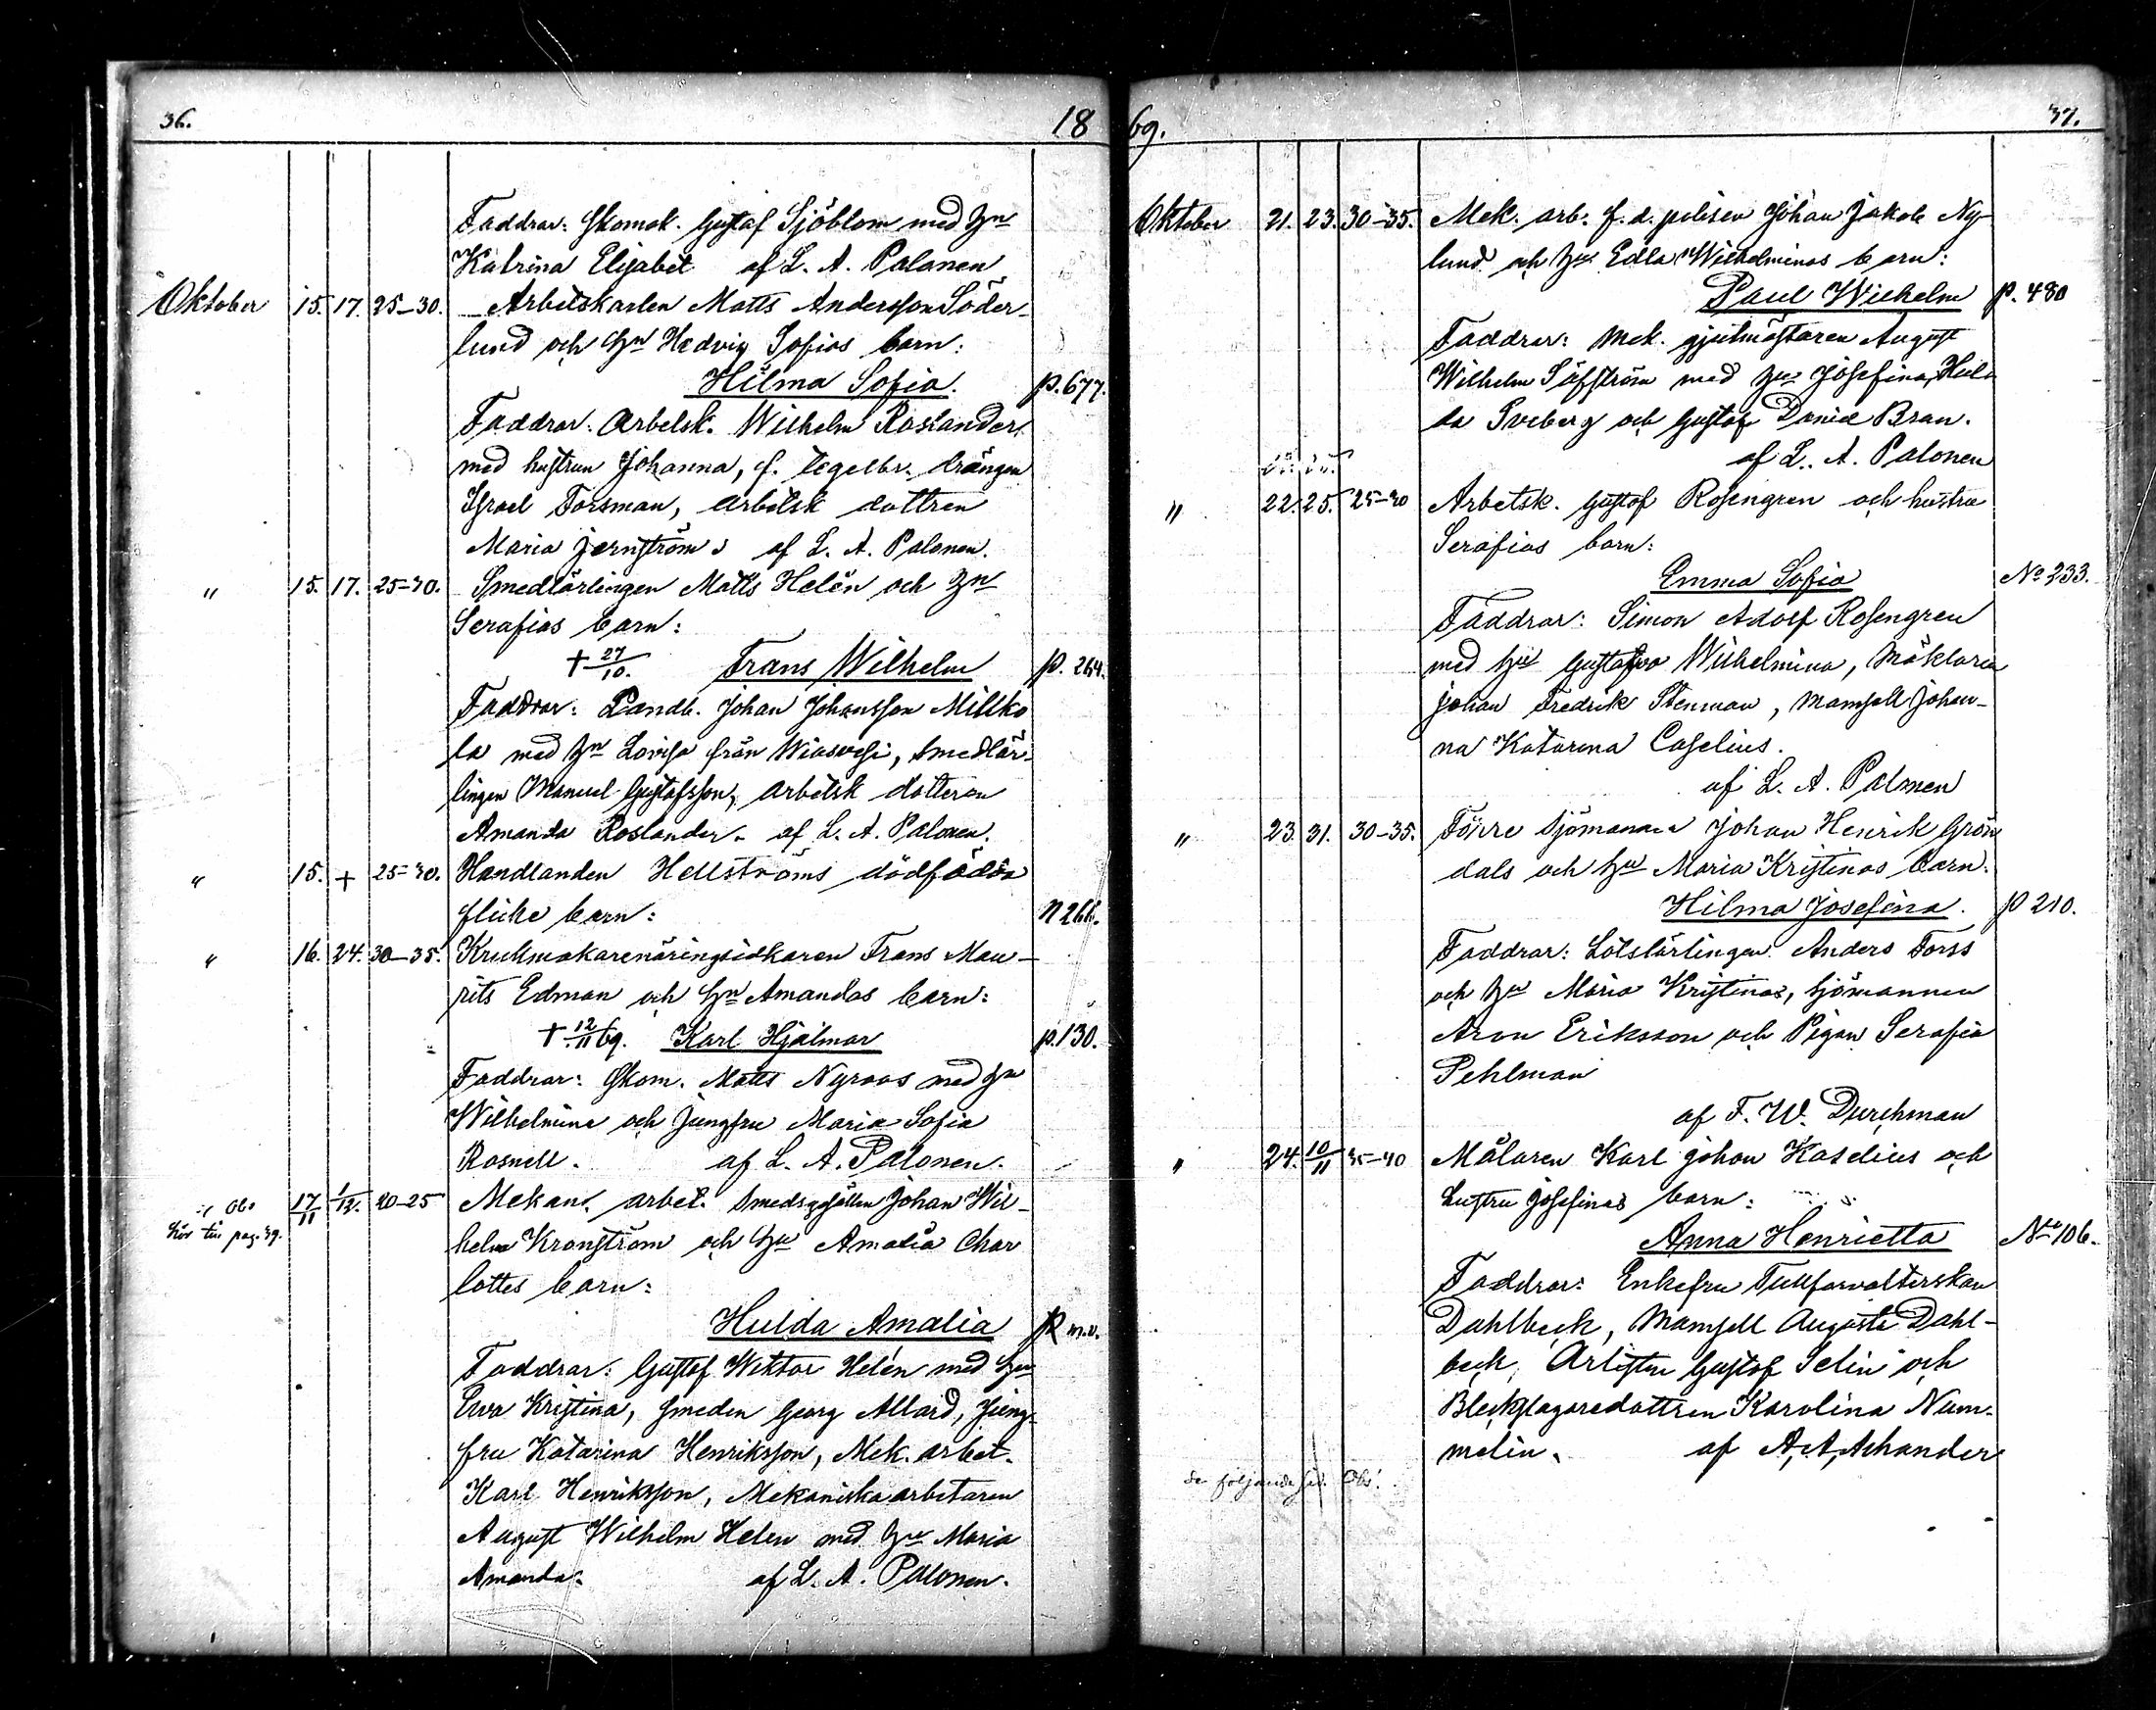 36. 18
Faddrar: Skomak. Gustaf Sjöblom med hu
Katrina Elisabet af L. A. Palonen
Oktober 15. 17. 25-30. Arbetskarlen Matts Andersson Söder-
lund och hu Hedvig Sofias barn:
Hilma Sofia. p. 677.
Faddrar: Arbetsk. Wilhelm Roslander
med hustrun Johanna, f. tegelbr. drängen
Israel Forsman, arbetsk dottren
Maria Jernström af L. A. Palonen.
" 15. 17. 25-30. Smedlärlingen Matts Helén och hu
Serafias barn:
+ 27/10. Frans Wilhelm p. 264.
Faddrar: Landb. Johan Johansson Mikko
la med hu Lovisa från Wiasvesi, smedlär-
lingen Manuel Gustafsson, arbetsk dotteren
Amanda Roslander. af L. A. Palonen.
" 15. + 25-30. Handlanden Hellströms dödfödda
flicke barn: N 266.
" 16. 24. 30-35. Krukmakarenäringsidkaren Frans Mau-
rits Edman och hu Amandas barn:
+ 12/11 69. Karl Hjalmar p. 130.
Faddrar: Skom. Matts Nyroos med hu
Wilhelmina och Jungfru Maria Sofia
Rosnell. af L. A. Palonen.
Obs 17/11 1/12. 20-25 Mekan. arbet. Smedsgesällen Johan Wil-
hör till pag. 39.
helm Kronström och hu Amalia Char
lottes barn:
Hulda Amalia p m.v.
Faddrar: Gustaf Wiktor Helén med hu
Ewa Kristina, Smeden Georg Allard, Jung-
fru Katarina Henriksson, Mek. arbet.
Karl Henriksson, Mekaniska arbetaren
August Wilhelm Helen med hu Maria
Amanda. af L. A. Palonen.
69. 37.
Oktober 21. 23. 30-35. Mek. arb. f. d. polisen Johan Jakob Ny-
lund och hu Edla Wilhelminas barn:
Paul Wilhelm p. 480
Faddrar: Mek. gjutmästaren August
Wilhelm Säfström med hu Josefina, Hul
da Sveberg och Gustaf David Bran.
af L. A. Palonen
" 22. 25. 25-30 Arbetsk. Gustaf Rosengren och hustru
Serafias barn:
Emma Sofia No 233.
Faddrar: Simon Adolf Rosengren
med hu Gustafva Wilhelmina, Mäklaren
Johan Fredrik Stenman, Mamsell Johan-
na Katarina Caselius.
af L. A. Palonen
" 23. 31. 30-35. Förre sjömannen Johan Henrik Grön
dals och hu Maria Kristinas barn.
Hilma Josefina. p 210.
Faddrar: Lotslärlingen Anders Forss
och hu Maria Kristinas, sjömannen
Aron Eriksson och Pigan Serafia
Pehlman
af F. W. Durchman
" 24. 10/11 35-40 Målaren Karl Johan Kaselius och
hustru Josefinas barn:
Anna Henrietta No 106.
Faddrar: Enkefru Tullförvalterskan
Dahlbeck, Mamsell Augusta Dahl-
beck, Artisten Gustaf Selin och
Bleckslagaredottren Karolina Num-
melin. af A, A, Ahlander
Se följande sid. Obs!